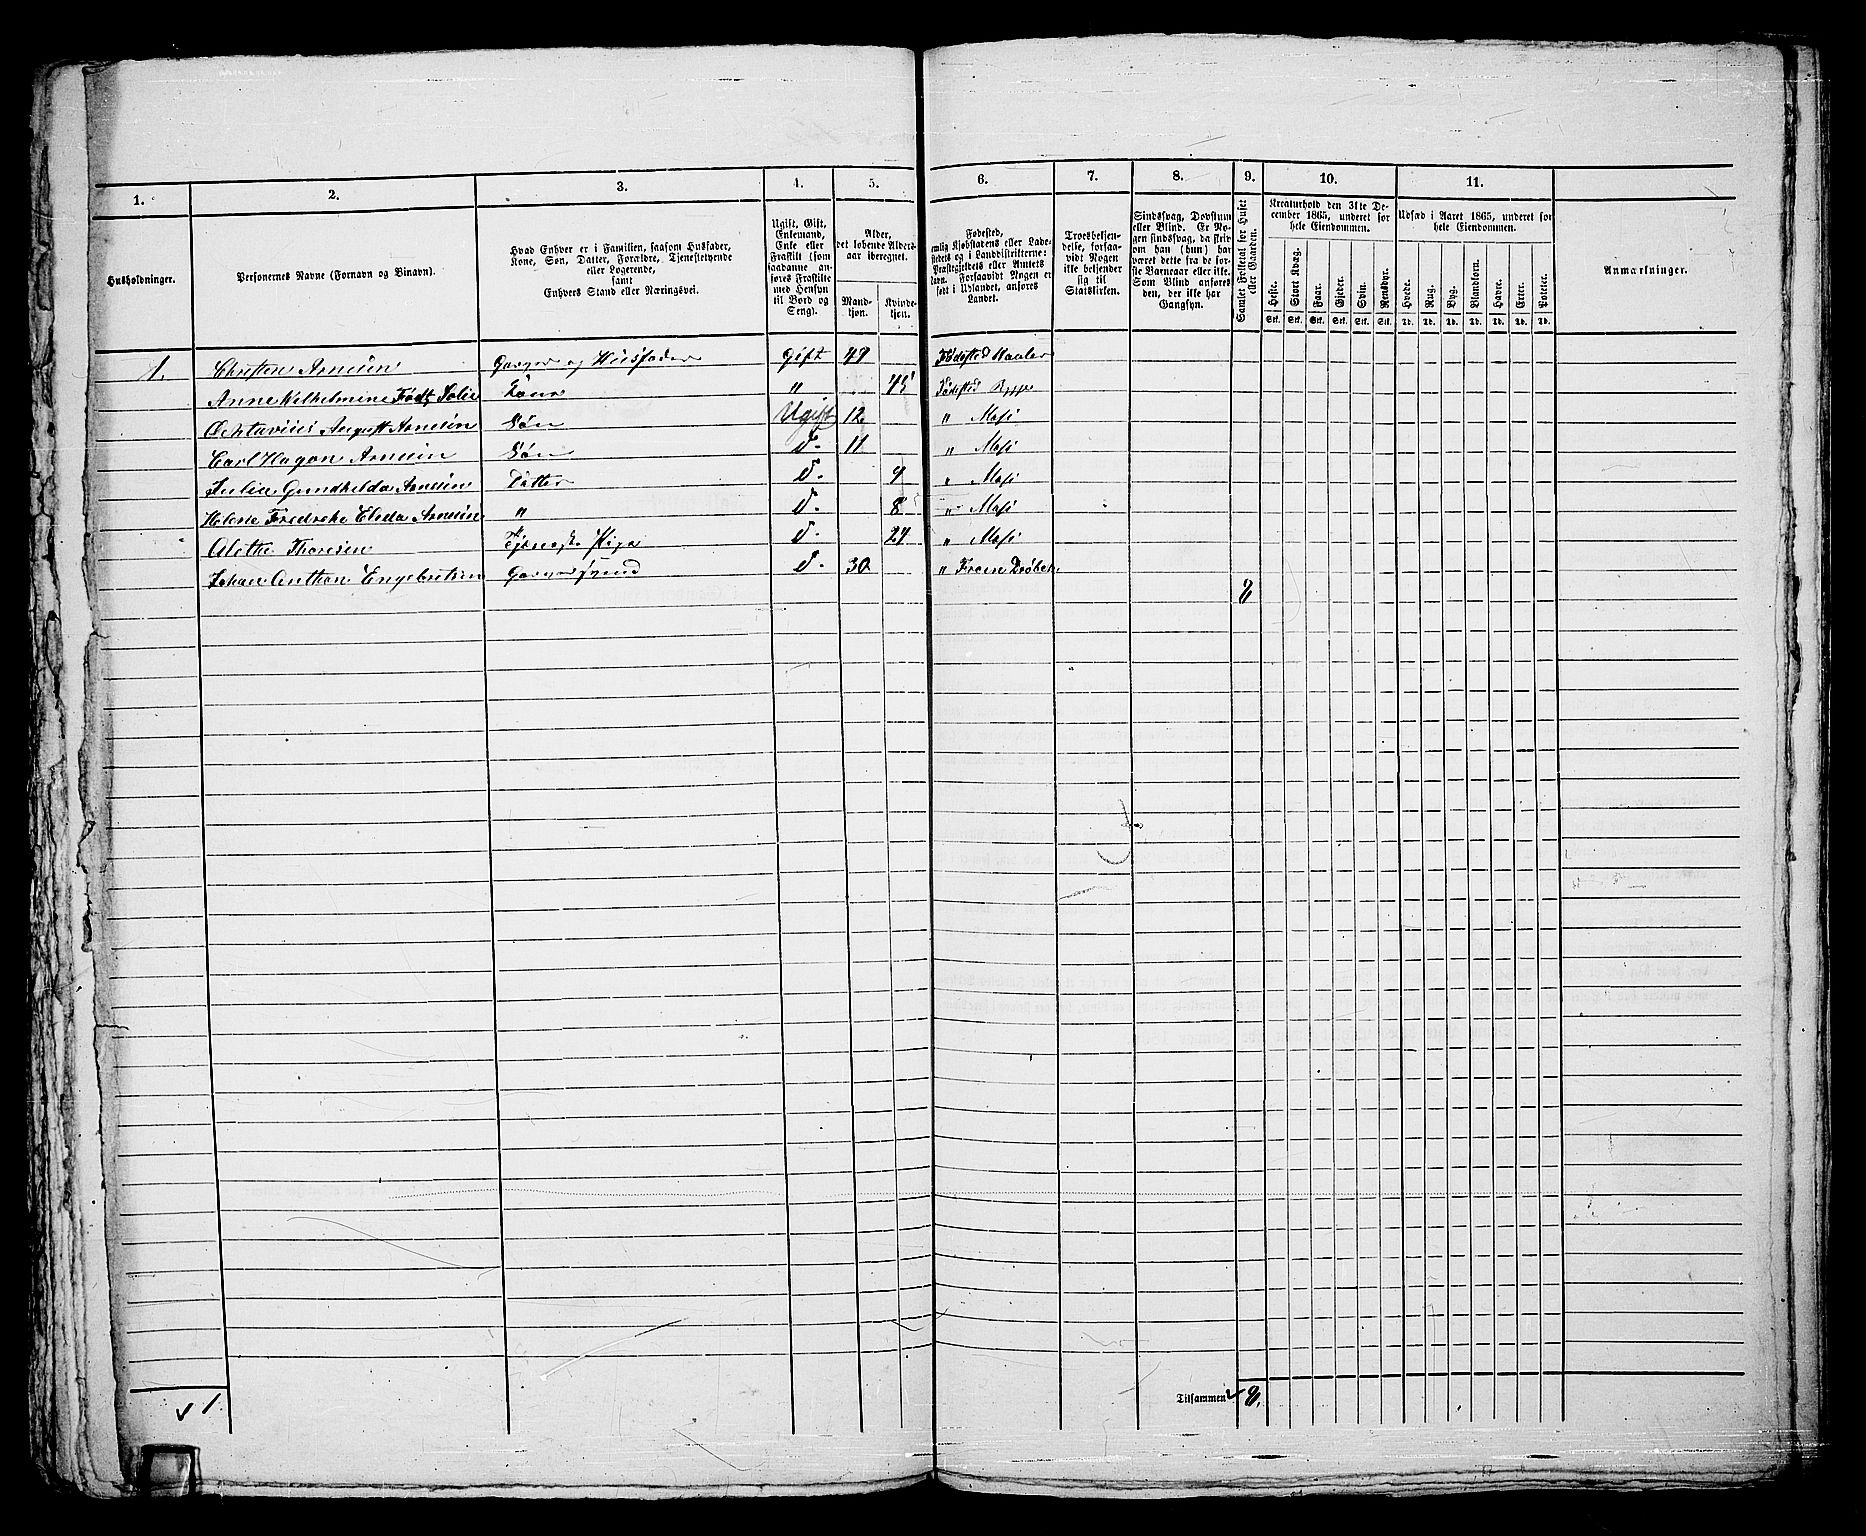 1. 2. 3. 4. 5. 6. 7. 8. 9. 10. 11.
Husholdninger.
Personernes Navne (Fornavn og Binavn).
Hvad Enhver er i Familien, saasom Husfader,
Kone, Søn, Datter, Forældre, Tjenestetyende
eller Logerende,
samt
Enhvers Stand eller Næringsvei.
Ugift, Gift,
Enkemand,
Enke eller
Fraskilt (som
saadanne an-
føres Fraskilte
med Hensyn
til Bord og
Seng).
Alder,
det løbende Alders-
aar iberegnet.
Mand-
kjøn.
Kvinde-
kjøn.
Fødested,
nemlig Kjøbstadens eller Lade-
stedets og i Landdistrifterne:
Præstegjeldets eller Amtets
Navn. Forsaavidt Nogen er
født i Udlandet, anføres
Landet.
Troesbekjen-
delse, forsaa-
vidt Nogen
ikke bekjender
sig til
Statskirken.
Sindssvag, Døvstum
eller Blind. Er No-
gen sindssvag, da skriv
om han (hun) har
været dette fra de før-
ste Barneaar eller ikke.
Som Blind anføres
den, der ikke har
Gangsyn.
Samlet Folketal for Huset
eller Gaarden.
Kreaturhold den 31te De-
cember 1865, underet for
hele Eiendommen.
Heste. Stort Kvæg. Faar. Gjeder. Svin. Rensdyr.
Stk. Stk. Stk. Stk. Stk. Stk.
Udsæd i Aaret 1865, underet for
hele Eiendommen.
Hvede. Rug. Byg. Blandkorn. Havre. Erter. Poteter.
Td. Td. Td. Td. Td. Td. Td.
Anmærkninger.
1. Christen Arnesen Garver og Huusfader Gift 49 Fødested Maaler
Anne Vilhelmine Født Solie Kone " 45 Fødested Rygge
Ochtavius August Arnesen Søn Ugift 12 " Moss
Carl Hagon Arnesen Søn d- 11 " Moss
Julie Gundhilda Arnesen Datter d- 9 " Moss
Helene Fredreke Elida Arnesen " d- 8 " Moss
Alethe Thoresen Tjeneste Pige d- 24 " Moss
Johan Anthon Engebretsen Garversvend d- 30 " Froen Drøbek
8
Tilsammen 8.
1